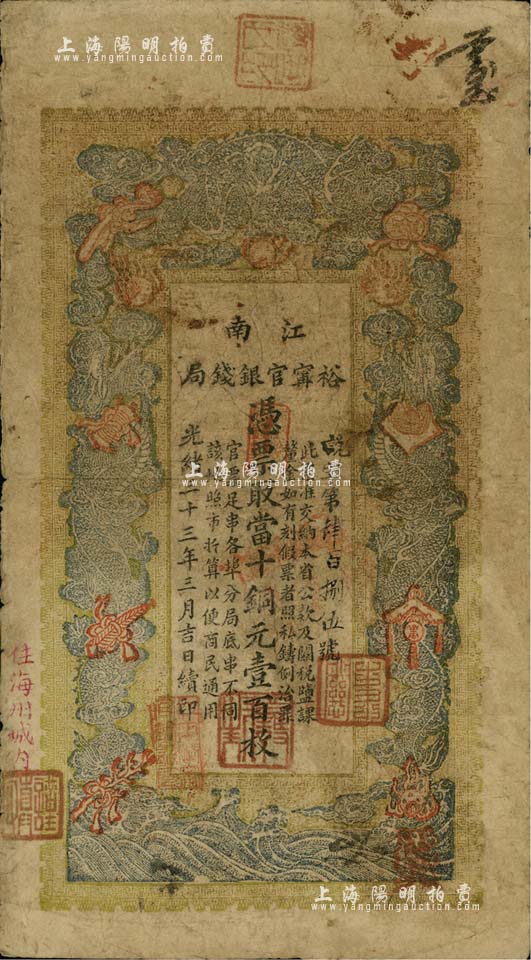 上海陽明拍賣
www.yangmingauction.com
江南
裕甯官銀錢局
第肆百捌伍號
此票准交納本省公款及關稅鹽課
釐金如有刻假票者照私鑄例治罪
憑票取當十銅元壹百枚
官票足串各埠分局底串不同
該照市折算以便商民通用
光緒二十三年三月吉日續印
住海州城內
上海陽明拍賣
www.yangmingauction.com
上海陽明拍賣
www.yangmingauction.com